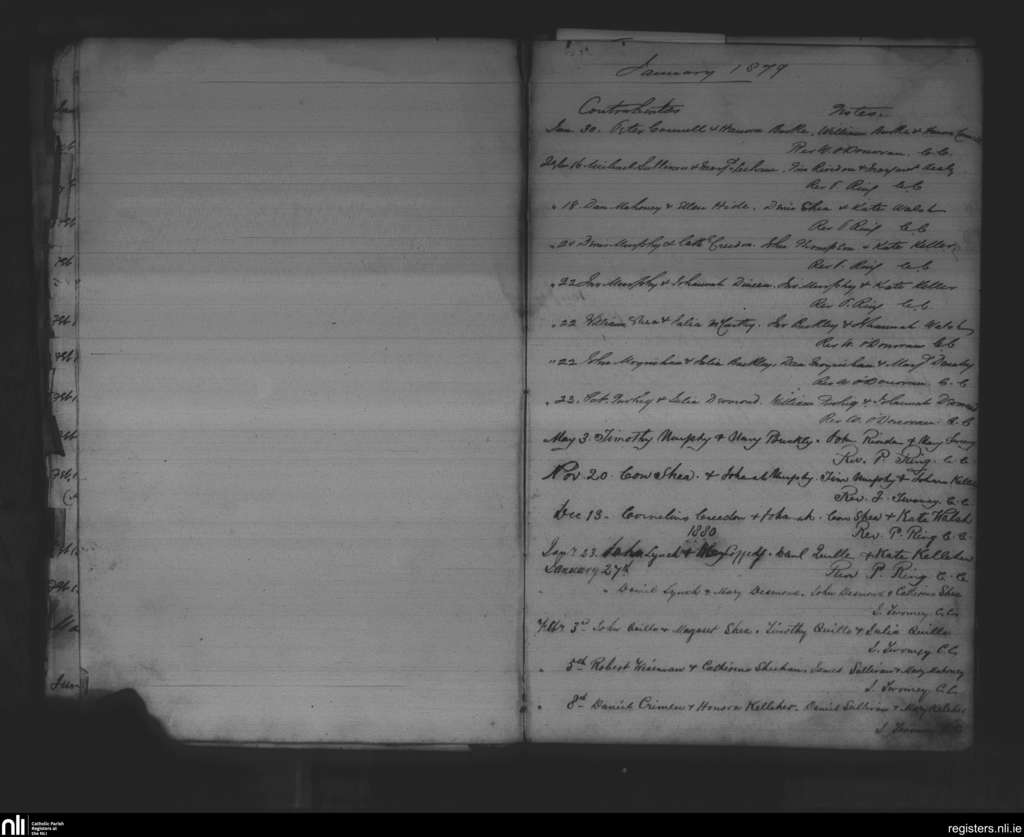 January 1879
Contrahentes Notes
Jan. 30. Peter Connell & Hanora Burke. William Burke & Hanora
Rev W. O'Donovan. C.C.
16 Michael Sullivan & Leehane. Tim Riordan & Margaret Healy
Rev P. Ring C.C
" 18 Dan Mahoney & Ellen Hide. Denis Shea & Kate Walsh
Rev P Ring C.C
" Denis Murphy & Cath Creedon. John Thompson & Kate Keller
Rev P. Ring C.C
" 22 Jno Murphy & Johannah Dineen. Jno Murphy & Kate Keller
Rev P. Ring C.C
" 22 William Shea & Julia McCarthy. Jno Buckley & Johannah Walsh
Rev W. O'Donovan C.C
" 22 John Moynihan & Julia Buckley. Dan Moynihan & Mary
Rev W O'Donovan C.C
" 22. Pat & Julia Desmond. William & Johannah
Rev W. O'Donovan C.C
May 3. Timothy Murphy & Mary Buckly. John & Mary
Rev. P. Ring. C.C.
Nov 20. Con Shea. & Johanah Murphy. Tim Murphy & Johana
Rev. J. Twomey C.C
Dec 13 - Cornelius Creedon & Johanah. Con Shea & Kate Walsh
Rev. P. Ring C.C.
1880
Jany 23. John Lynch & May Daul Quille & Kate Kelleher
January 27th Rev P. Ring C.C
" " Daniel Lynch & Mary Desmond. John Desmond & Catherine Shea
J. Twomey C.C.
Feb 3rd John Quille & Margaret Shea. Timothy Quille & Julia Quille
J. Twomey C.C
" 5th Robert Wiseman & Catherine Sheehan. James Sullivan & Mary Mahoney
J. Twomey C.C.
" 8th Daniel Crimen & Honora Kelleher. Daniel Sullivan & Mary Kelleher
J. Twomey C.C
nli
Catholic Parish
Registers at
the NLI
registers.nli.ie